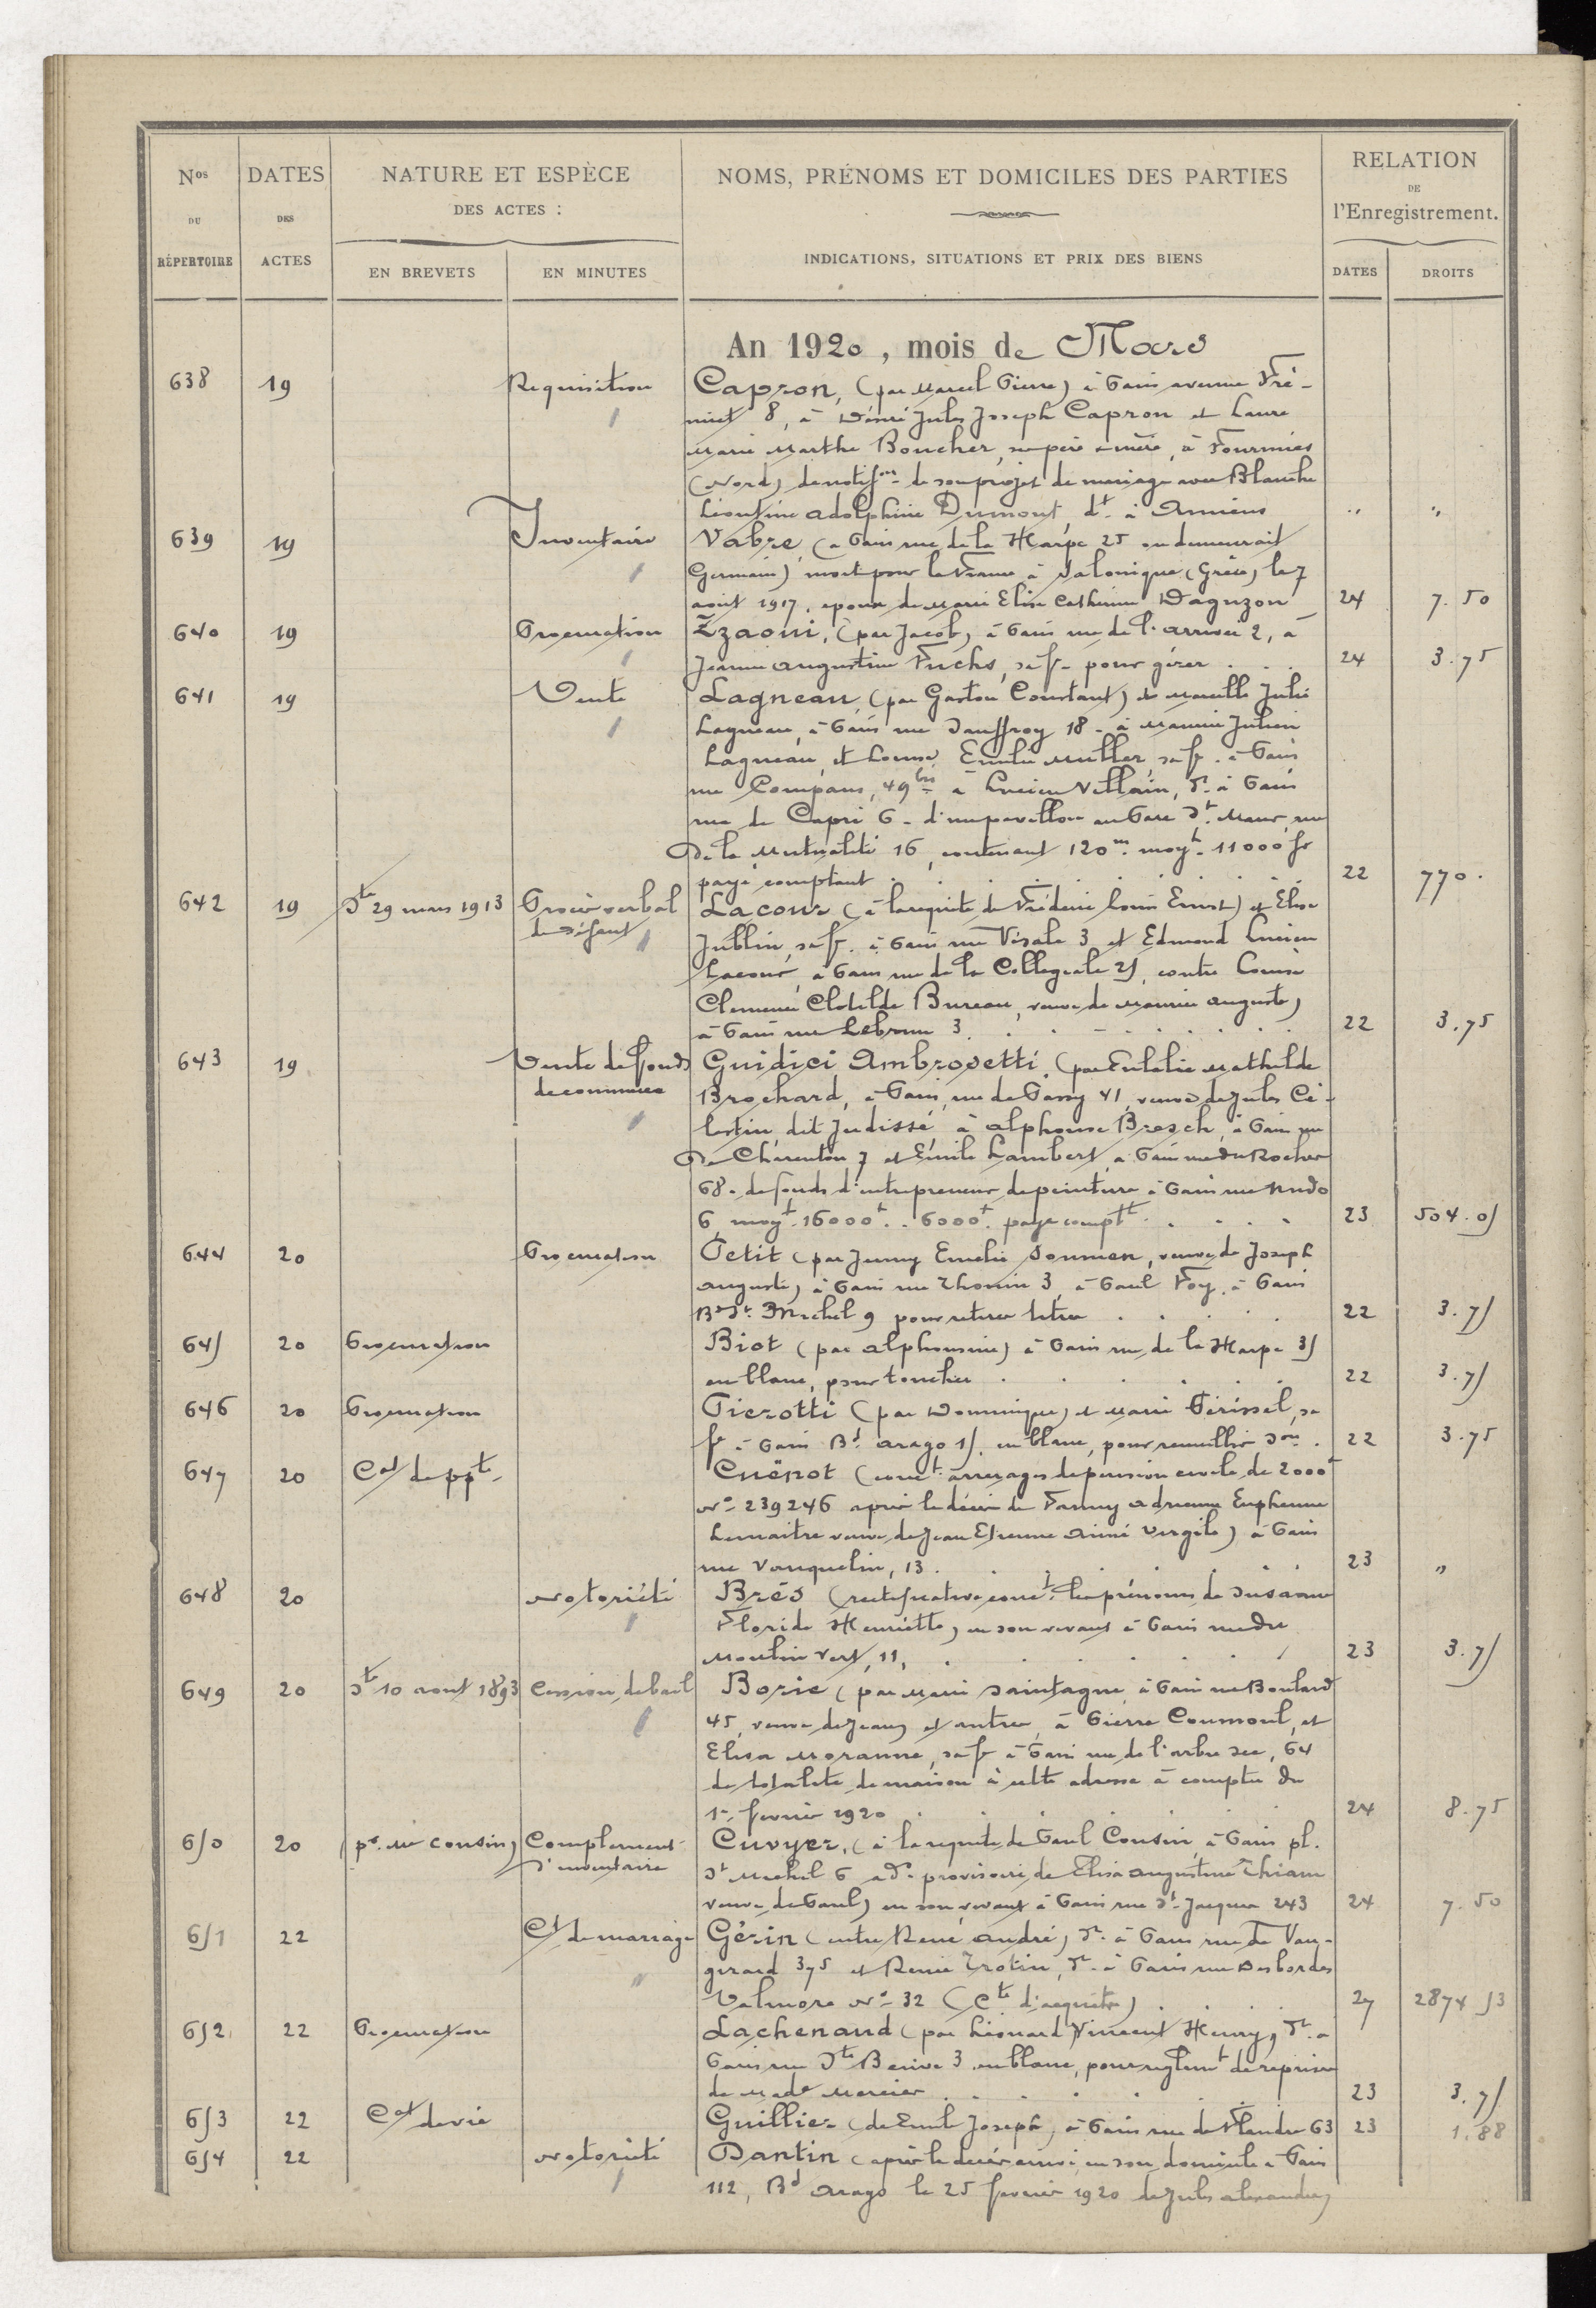 Nos DU RÉPERTOIRE
DATES DES ACTES
NATURE ET ESPÈCE DES ACTES :
EN BREVETS
EN MINUTES
NOMS, PRÉNOMS ET DOMICILES DES PARTIES
INDICATIONS, SITUATIONS ET PRIX DES BIENS
RELATION DE l'Enregistrement.
DATES
DROITS
An 1920, mois de Mars
638 19 Requisition Capron, (par Marcel Pierre) à Paris avenue Fré-
miet 8, à Désiré Jules Joseph Capron et Laure
Marie Marthe Boucher, ses père et mère, à Fourmies
(Nord) de notifon de son projet de mariage avec Blanche
Léontine Adolphine Dumont, dt à Amiens " "
639 19 Inventaire Vabre, (à Paris rue de la Harpe 25 où demeurait
Germain) mort pour la France à Salonique (Grèce) le 7
août 1917, époux de Marie Elise Catherine Daguzon 24 7.50
640 19 Procuration Ezaoui, (par Jacob) à Paris rue de l'arrivée 2, à
Jeanne Augustine Fuchs, sa fe pour gérer 24 3.75
641 19 Vente Lagneau, (par Gaston Constant) et Marcelle Julie
Lagneau, à Paris rue Jouffroy 18 - à Maurice Julien
Lagneau, et Louise Emilie Muller, sa fe à Paris
rue Compans, 49 bis à Lucien Villain, dt à Paris
rue de Capri 6 - d'un pavillon au Parc St Maur, rue
de la Mutualité 16, contenant 120m moyt 11000 fr
payé comptant 22 770.
642 19 Ste 29 mars 1913 Procès verbal Lacour (à la requête de Frédéric Louis Ernest) et Elise
de défaut Jublin, sa fe à Paris rue Visale 3 et Edmond Lucien
Lacour, à Paris rue de la Collegiale 25, contre Louise
Clemence Clotilde Bureau, veuve de Maurice Auguste)
à Paris rue Lebrun 3 22 3.75
643 19 Vente de fonds Guidici Ambrosetti, (par Eulalie Mathilde
de commerce Brochard, à Paris, rue de Passy 41, veuve de Jules Cé-
lestin, dit Judissé, à Alphonse Bresch, à Paris rue
de Charenton 7 et Emile Lambert, à Paris rue du Rocher
68 - de fonds d'entrepreneur de peinture à Paris rue
6, moyt 16000f. 6000f payé compt 23 504.05
644 20 Procuration Petit (par Jenny Emelie veuve de Joseph
Auguste) à Paris rue Thouin 3, à Paul Foy, à Paris
Bd St Michel 9 pour retirer titre 22 3.75
645 20 Procuration Biot (par Alphonsine) à Paris rue de la Harpe 35
en blanc, pour toucher 22 3.75
646 20 Procuration Pierotti (par Dominique) et Marie Périssel, sa
fe à Paris Bd Arago 15, en blanc, pour recueillir son 22 3.75
647 20 Cat de ppté Cuënot (conct arrérages de pension civile de 2000f
No 239246 après le décès de Fanny Adrienne Euphemie
Lemaitre veuve de Jean Etienne Aimé Virgile) à Paris
rue Vauquelin, 13 23 "
648 20 Notoriété Brés (rectificative conct les prénoms de Susanne
Floride Henriette) en son vivant à Paris rue du
Moulin Vert, 11, 23 3.75
649 20 Ste 10 aout 1893 Cession de bail Borie (par Marie Saintagne, à Paris rue Boulard
45, veuve de Jean) et autres, à Pierre Coumoul, et
Elisa Moranne, sa fe à Paris rue de l'arbre sec, 64
de totalité de maison à cette adresse à compter du
1er fevrier 1920 24 8.75
650 20 (pr Me Cousin) Complement Cuvyer, (à la requête de Paul Cousin, à Paris pl.
d'inventaire St Michel 6 adr provisoire de Elisa Augustine Thiam
veuve de Paul) en son vivant à Paris rue St Jacques 243 24 7.50
651 22 Ct de mariage Gérin (entre René André) dt à Paris rue de Vau-
girard 375 et Renée Trotin, dt à Paris rue Desbordes
Valmore No 32 (Cté d'acquêts) 27 2874 53
652 22 Procuration Lachenaud (par Léonard Vincent Henry) dt à
Paris rue Ste Beuve 3 en blanc, pour reglemt de reprises
de Made Mercier 23 3.75
653 22 Cat de vie Guillier (de Emile Joseph) à Paris rue de Flandre 63 23 1.88
654 22 Notoriété Dantin (après le décès arrivé en son domicile à Paris
112, Bd Arago le 25 fevrier 1920 de Jules Alexandre)